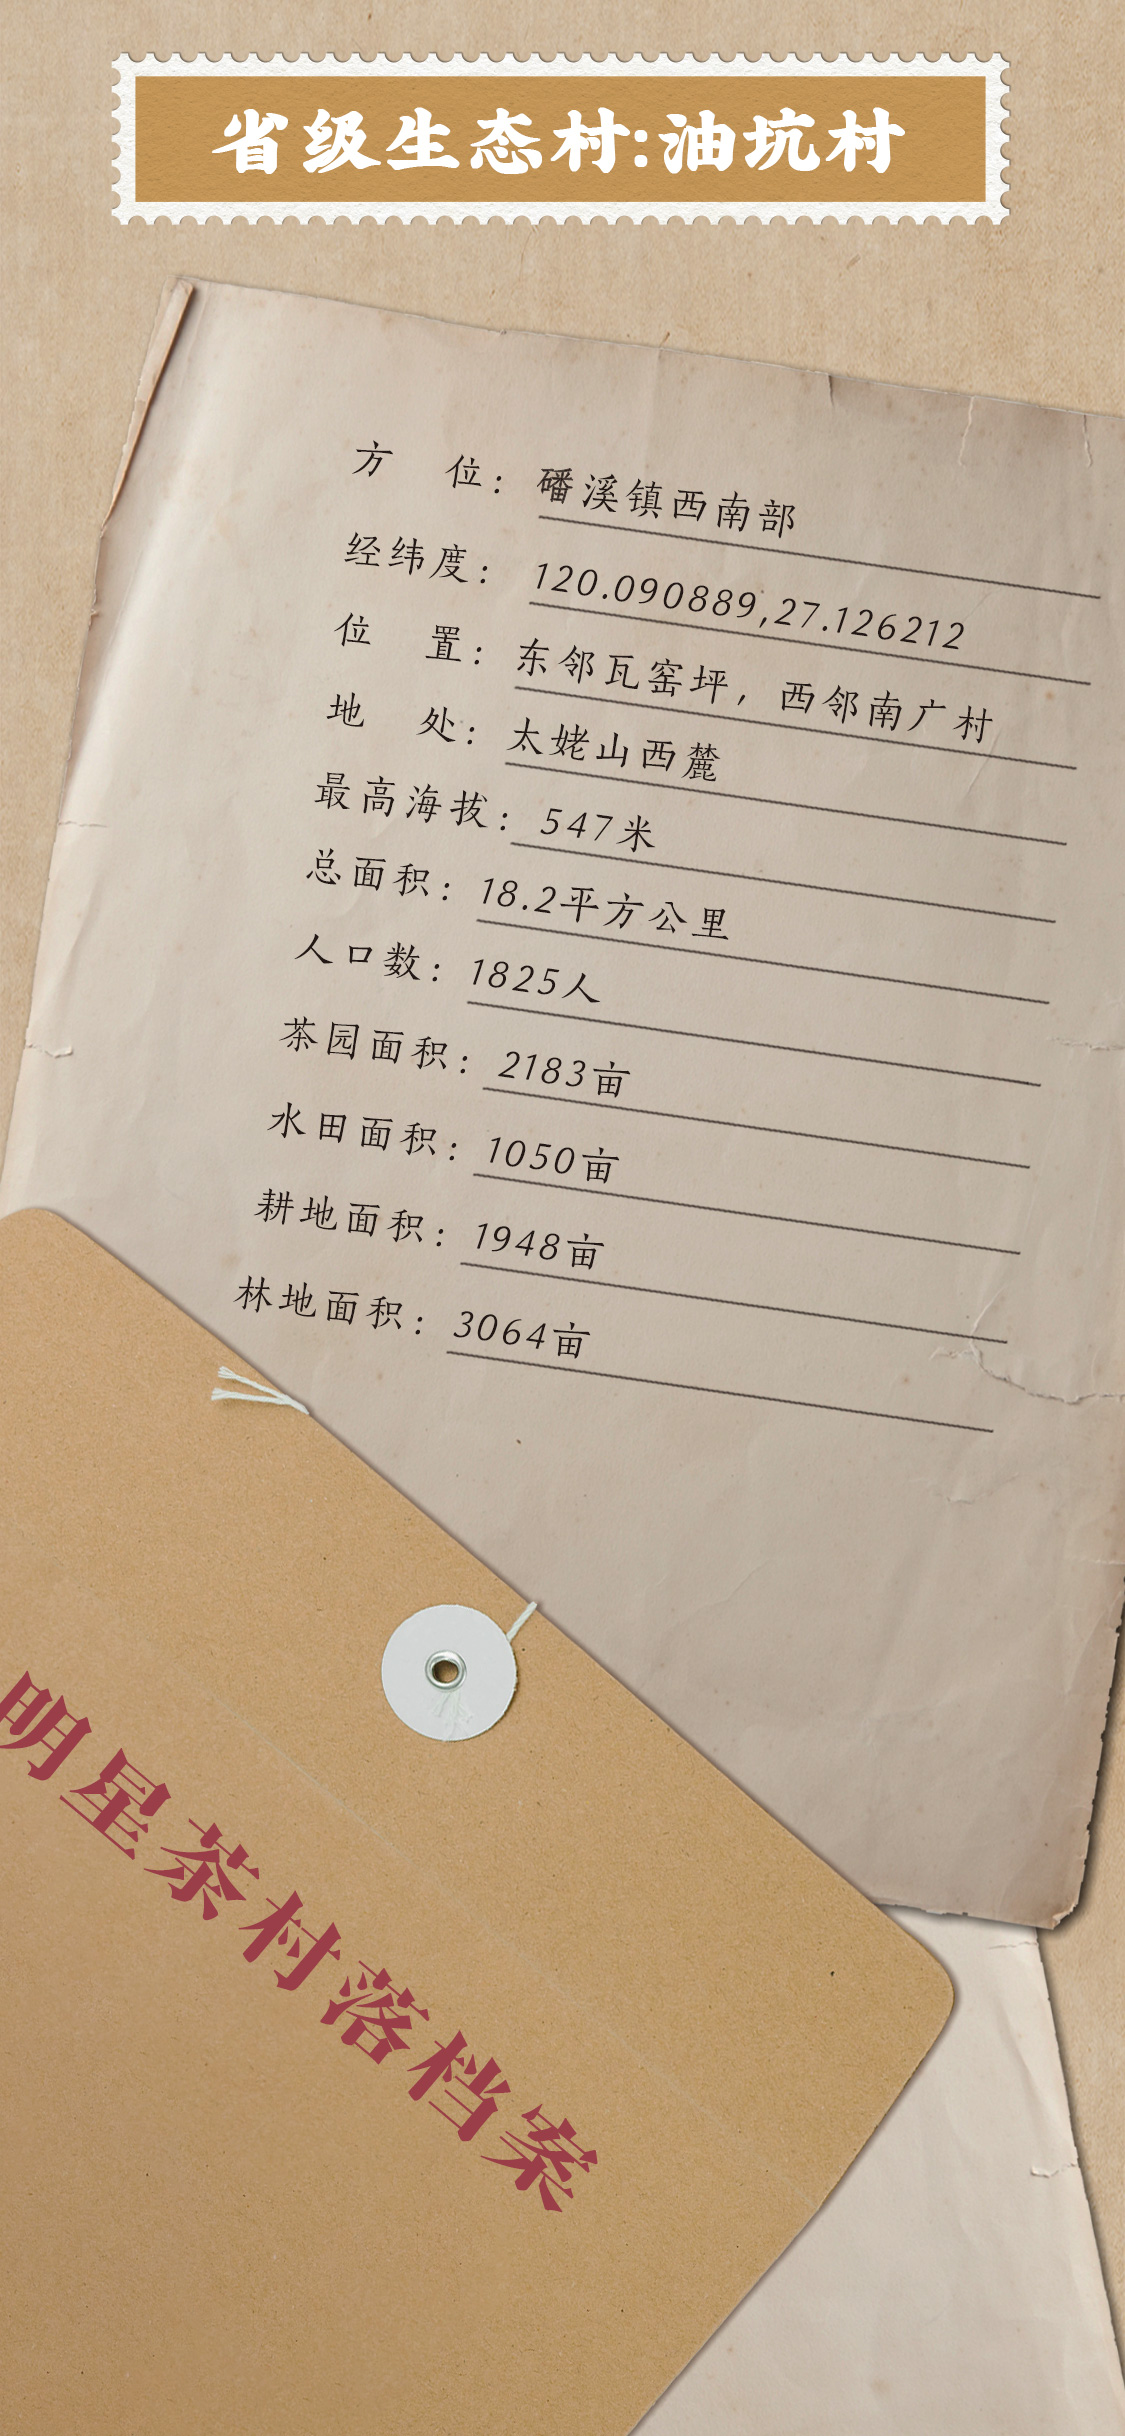 省级生态村:油坑村
方 位：磻溪镇西南部
经纬度：120.090889,27.126212
位 置：东邻瓦窑坪，西邻南广村
地 处：太姥山西麓
最高海拔：547米
总面积：18.2平方公里
人口数：1825人
茶园面积：2183亩
水田面积：1050亩
耕地面积：1948亩
林地面积：3064亩
明星茶村落档案